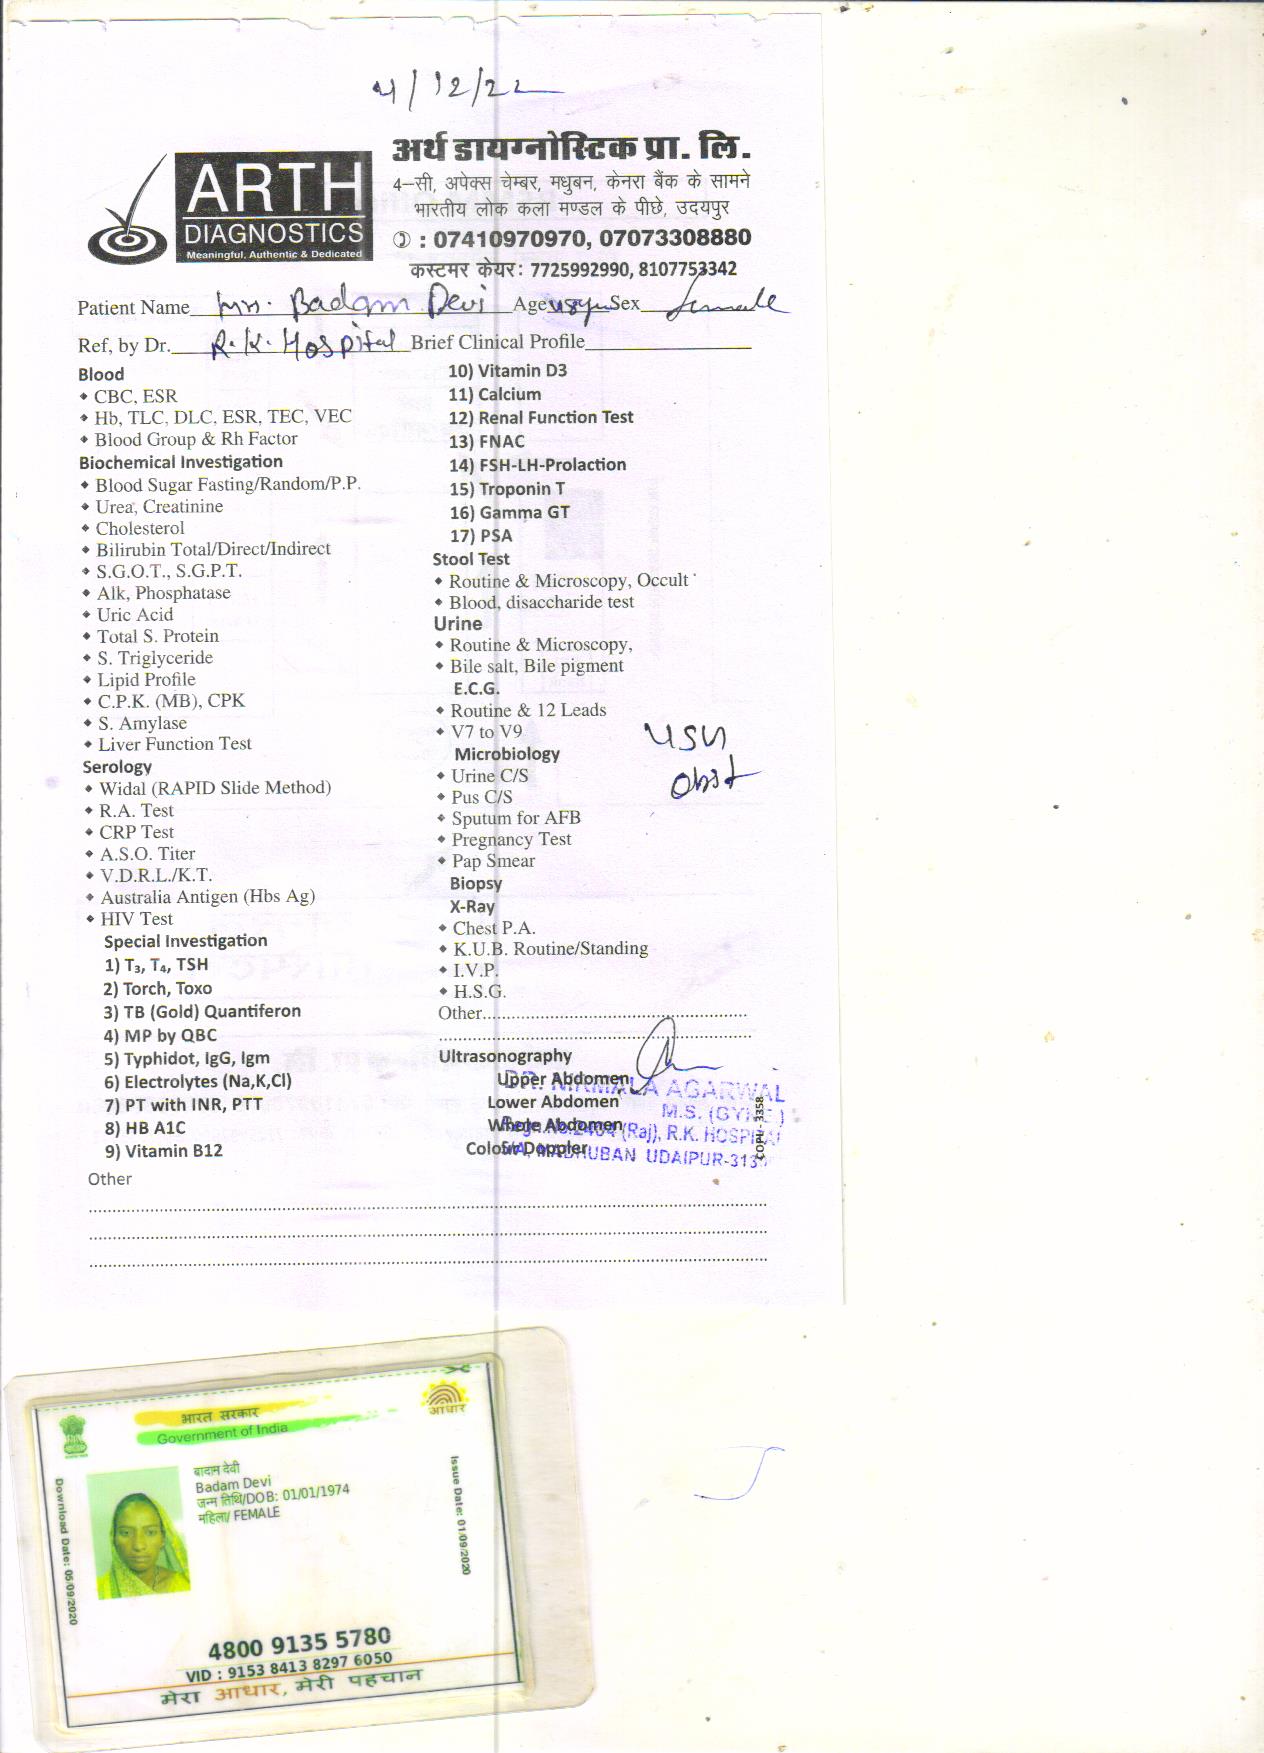 4/12/22
ARTH
DIAGNOSTICS
Meaningful, Authentic & Dedicated
अर्थ डायग्नोस्टिक प्रा. लि.
4–सी, अपेक्स चेम्बर, मधुबन, केनरा बैंक के सामने
भारतीय लोक कला मण्डल के पीछे, उदयपुर
✆ : 07410970970, 07073308880
कस्टमर केयर: 7725992990, 8107753342
Patient Name Mrs. Badam Devi Age 48yr Sex female
Ref, by Dr. R.K. Hospital Brief Clinical Profile
Blood
CBC, ESR
Hb, TLC, DLC, ESR, TEC, VEC
Blood Group & Rh Factor
Biochemical Investigation
Blood Sugar Fasting/Random/P.P.
Urea, Creatinine
Cholesterol
Bilirubin Total/Direct/Indirect
S.G.O.T., S.G.P.T.
Alk, Phosphatase
Uric Acid
Total S. Protein
S. Triglyceride
Lipid Profile
C.P.K. (MB), CPK
S. Amylase
Liver Function Test
Serology
Widal (RAPID Slide Method)
R.A. Test
CRP Test
A.S.O. Titer
V.D.R.L./K.T.
Australia Antigen (Hbs Ag)
HIV Test
Special Investigation
1) T₃, T₄, TSH
2) Torch, Toxo
3) TB (Gold) Quantiferon
4) MP by QBC
5) Typhidot, IgG, Igm
6) Electrolytes (Na,K,Cl)
7) PT with INR, PTT
8) HB A1C
9) Vitamin B12
10) Vitamin D3
11) Calcium
12) Renal Function Test
13) FNAC
14) FSH-LH-Prolaction
15) Troponin T
16) Gamma GT
17) PSA
Stool Test
Routine & Microscopy, Occult
Blood, disaccharide test
Urine
Routine & Microscopy,
Bile salt, Bile pigment
E.C.G.
Routine & 12 Leads
V7 to V9
Microbiology
Urine C/S
Pus C/S
Sputum for AFB
Pregnancy Test
Pap Smear
Biopsy
X-Ray
Chest P.A.
K.U.B. Routine/Standing
I.V.P.
H.S.G.
Other
USG
Obst
Ultrasonography
Upper Abdomen
Lower Abdomen
Whole Abdomen
Colour Doppler
DR. NIRMALA AGARWAL
M.S. (GYNE)
Regn.No.2404 (Raj), R.K. HOSPITAL
5/A, MADHUBAN UDAIPUR-313
COPU - 3358
Other
भारत सरकार
Government of India
आधार
बादाम देवी
Badam Devi
जन्म तिथि/DOB: 01/01/1974
महिला/ FEMALE
Download Date: 05/09/2020
Issue Date: 01/09/2020
4800 9135 5780
VID : 9153 8413 8297 6050
मेरा आधार, मेरी पहचान